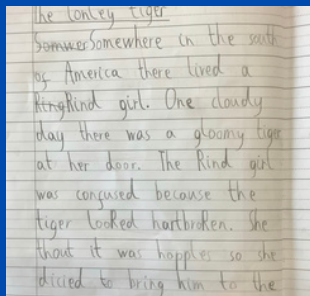 The lonley tiger
Somwer Somewhere in the south
of America there lived a
King Kind girl. One cloudy
day there was a gloomy tiger
at her door. The Kind girl
was confused because the
tiger looked hartbroken. She
thout it was hopples so she
dicied to bring him to the